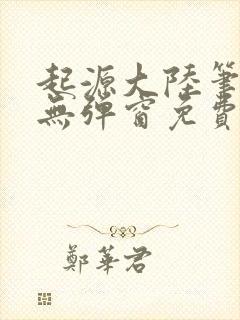 起源大陸筆
無彈窗免費
鄭華君